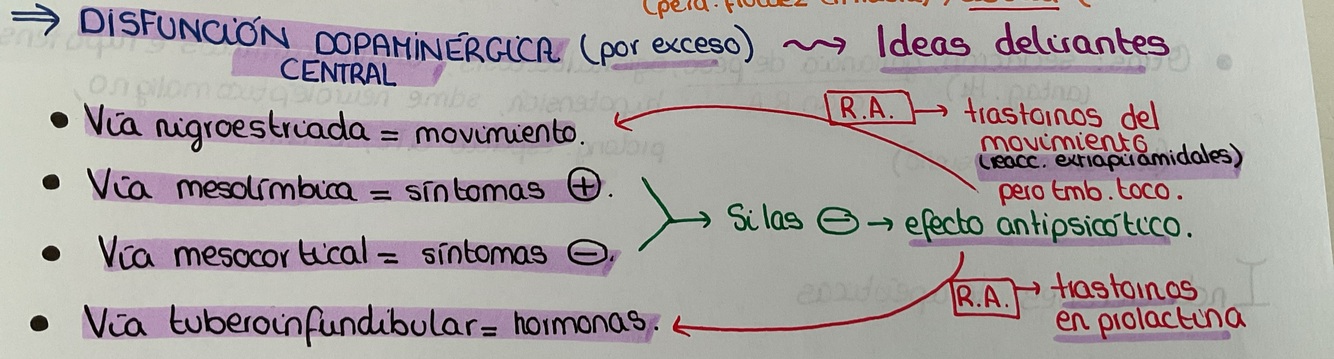 ⇒ DISFUNCIÓN DOPAMINÉRGICA (por exceso) ⇝ Ideas delirantes
CENTRAL
• Vía nigroestriada = movimiento.
R.A. → trastornos del
movimiento
(reacc. extrapiramidales)
pero tmb. toco.
• Vía mesolímbica = síntomas ⊕.
• Vía mesocortical = síntomas ⊖.
→ Si las ⊖ → efecto antipsicótico.
• Vía tuberoinfundibular = hormonas.
R.A. → trastornos
en prolactina